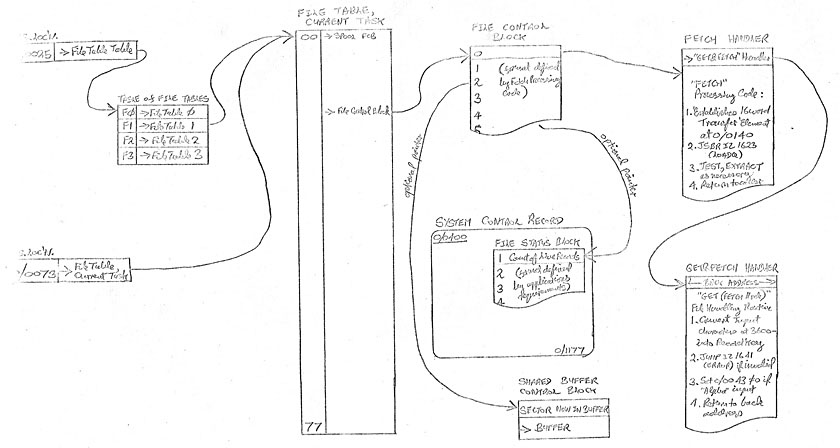 FILE TABLE,
CURRENT TASK
00 → SPOOL FCB
→ File Control Block
77
0025 → File Table Table
TABLE of FILE TABLES
F0 → File Table 0
F1 → File Table 1
F2 → File Table 2
F3 → File Table 3
/0073 → File Table
Current Task
FILE CONTROL
BLOCK
0
1 (format defined
2 by Fetch Processing
3 Code)
4
5
optional pointer
optional pointer
SYSTEM CONTROL RECORD
0/0400
FILE STATUS BLOCK
1 Count of Live Records
2 (format defined
3 by applications
4 requirements)
0/1177
SHARED BUFFER
CONTROL BLOCK
SECTOR NOW IN BUFFER
→ BUFFER
FETCH HANDLER
→ "GETB FETCH" Handler
"FETCH"
Processing Code:
1. Establishes
Transfer Element
at 0/0140
2. JSBR I2 1623
(LOADQ)
3. TEST, EXTRACT
as necessary
4. Return to caller
GETB FETCH HANDLER
BACK ADDRESS →
"GET (Fetch Mode)"
File Handling Routine
1. Convert Input
characters at
into Record Key
2. JUMP I2 1641
if invalid
3. Set if
"Alpha" input
4. Return to back
address